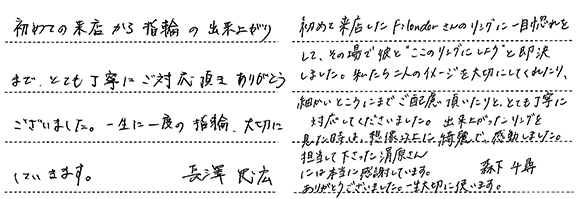 初めての来店から指輪の出来上がり
まで、とても丁寧にご対応頂き ありがとう
ございました。一生に一度の指輪、大切に
していきます。 長澤 民広
初めて来店したFilondorさんのリングに一目惚れを
して、その場で彼と“このリングにしよう”と即決
しました。私たち二人のイメージを大切にしてくれたり、
細かいところにまでご配慮頂いたりと、とても丁寧に
対応してくださいました。出来上がったリングを
見た時は、想像以上に綺麗で、感動しました。
担当して下さった清原さん
には本当に感謝しています。 森下 千尋
ありがとうございました。一生大切に使います。